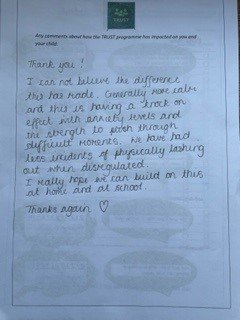 TRUST
Any comments about how the TRUST programme has impacted on you and
your child.
Thank you!
I can not believe the difference
this has made. Generally more calm
and this is having a knock on
effect with anxiety levels and
the strength to push through
difficult moments. We have had
less incidents of physically lashing
out when disregulated.
I really hope we can build on this
at home and at school.
Thanks again ♡